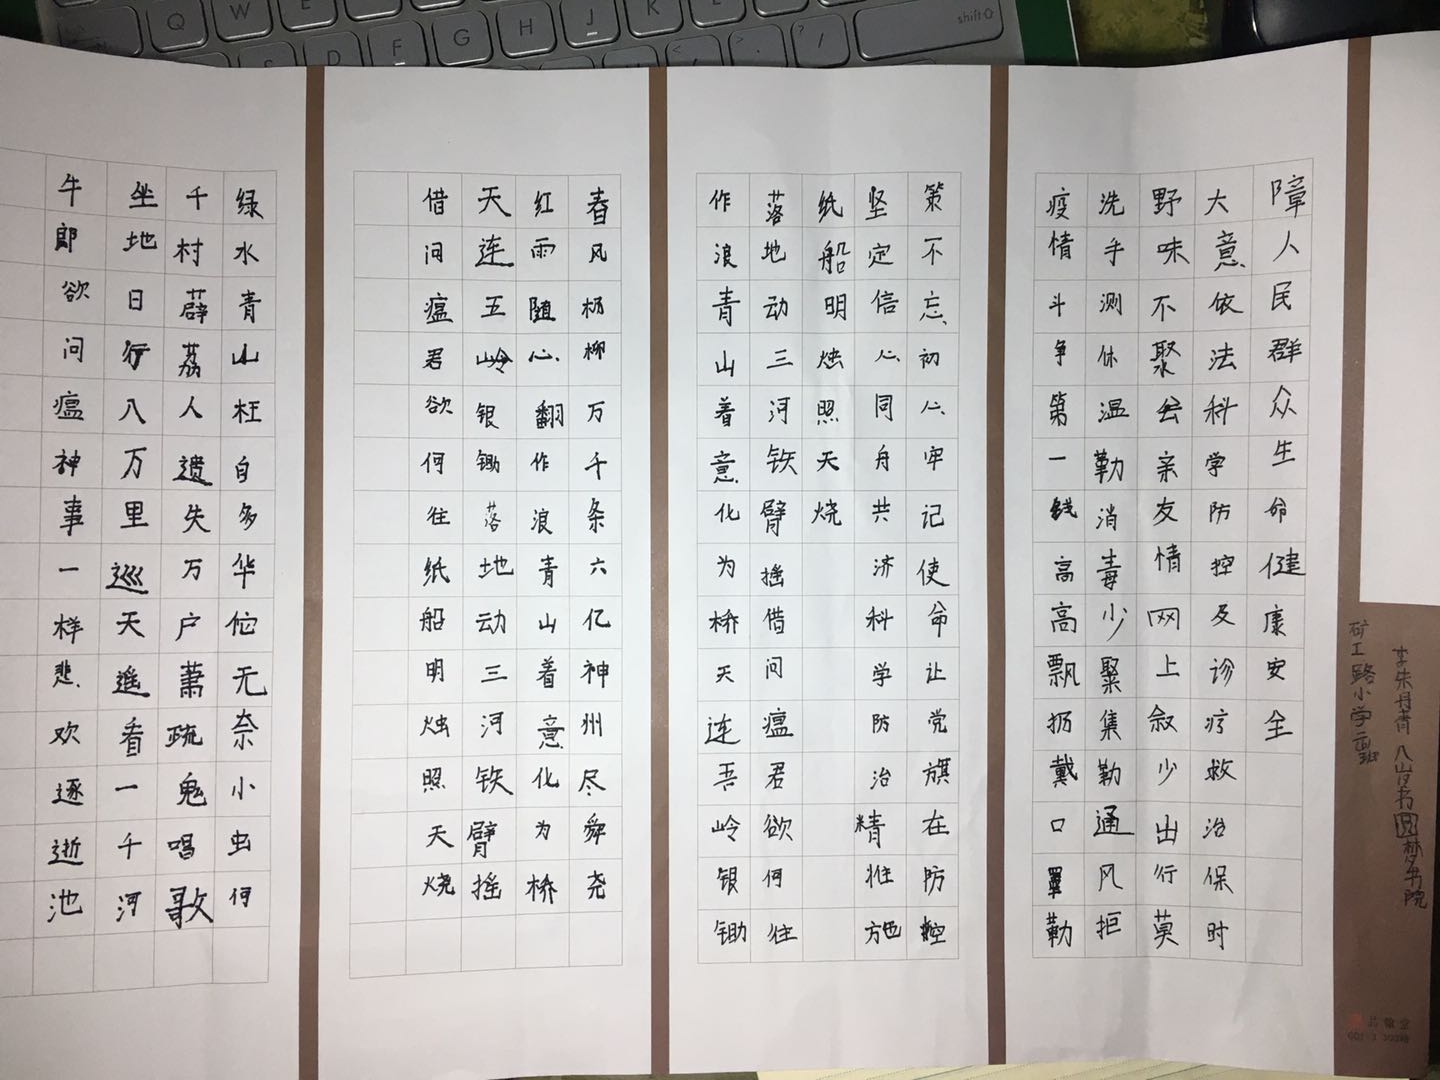 绿水青山枉自多华佗无奈小虫何
千村薜荔人遗失万户萧疏鬼唱歌
坐地日行八万里巡天遥看一千河
牛郎欲问瘟神事一样悲欢逐逝池
春风杨柳万千条六亿神州尽舜尧
红雨随心翻作浪青山着意化为桥
天连五岭银锄落地动三河铁臂摇
借问瘟君欲何往纸船明烛照天烧
作浪青山着意化为桥天连吾岭银锄
落地动三河铁臂摇借问瘟君欲何往
纸船明烛照天烧
坚定信心同舟共济科学防治精准施
策不忘初心牢记使命让党旗在防控
疫情斗争第一线高高飘扬戴口罩勤
洗手测休温勤消毒少聚集勤通风拒
野味不聚会亲友情网上叙少出行莫
大意依法科学防控及诊疗救治保时
障人民群众生命健康安全
矿工路小学
李朱丹青 八岁书 圆梦书院
Q W E R
D F G H J K L
shift